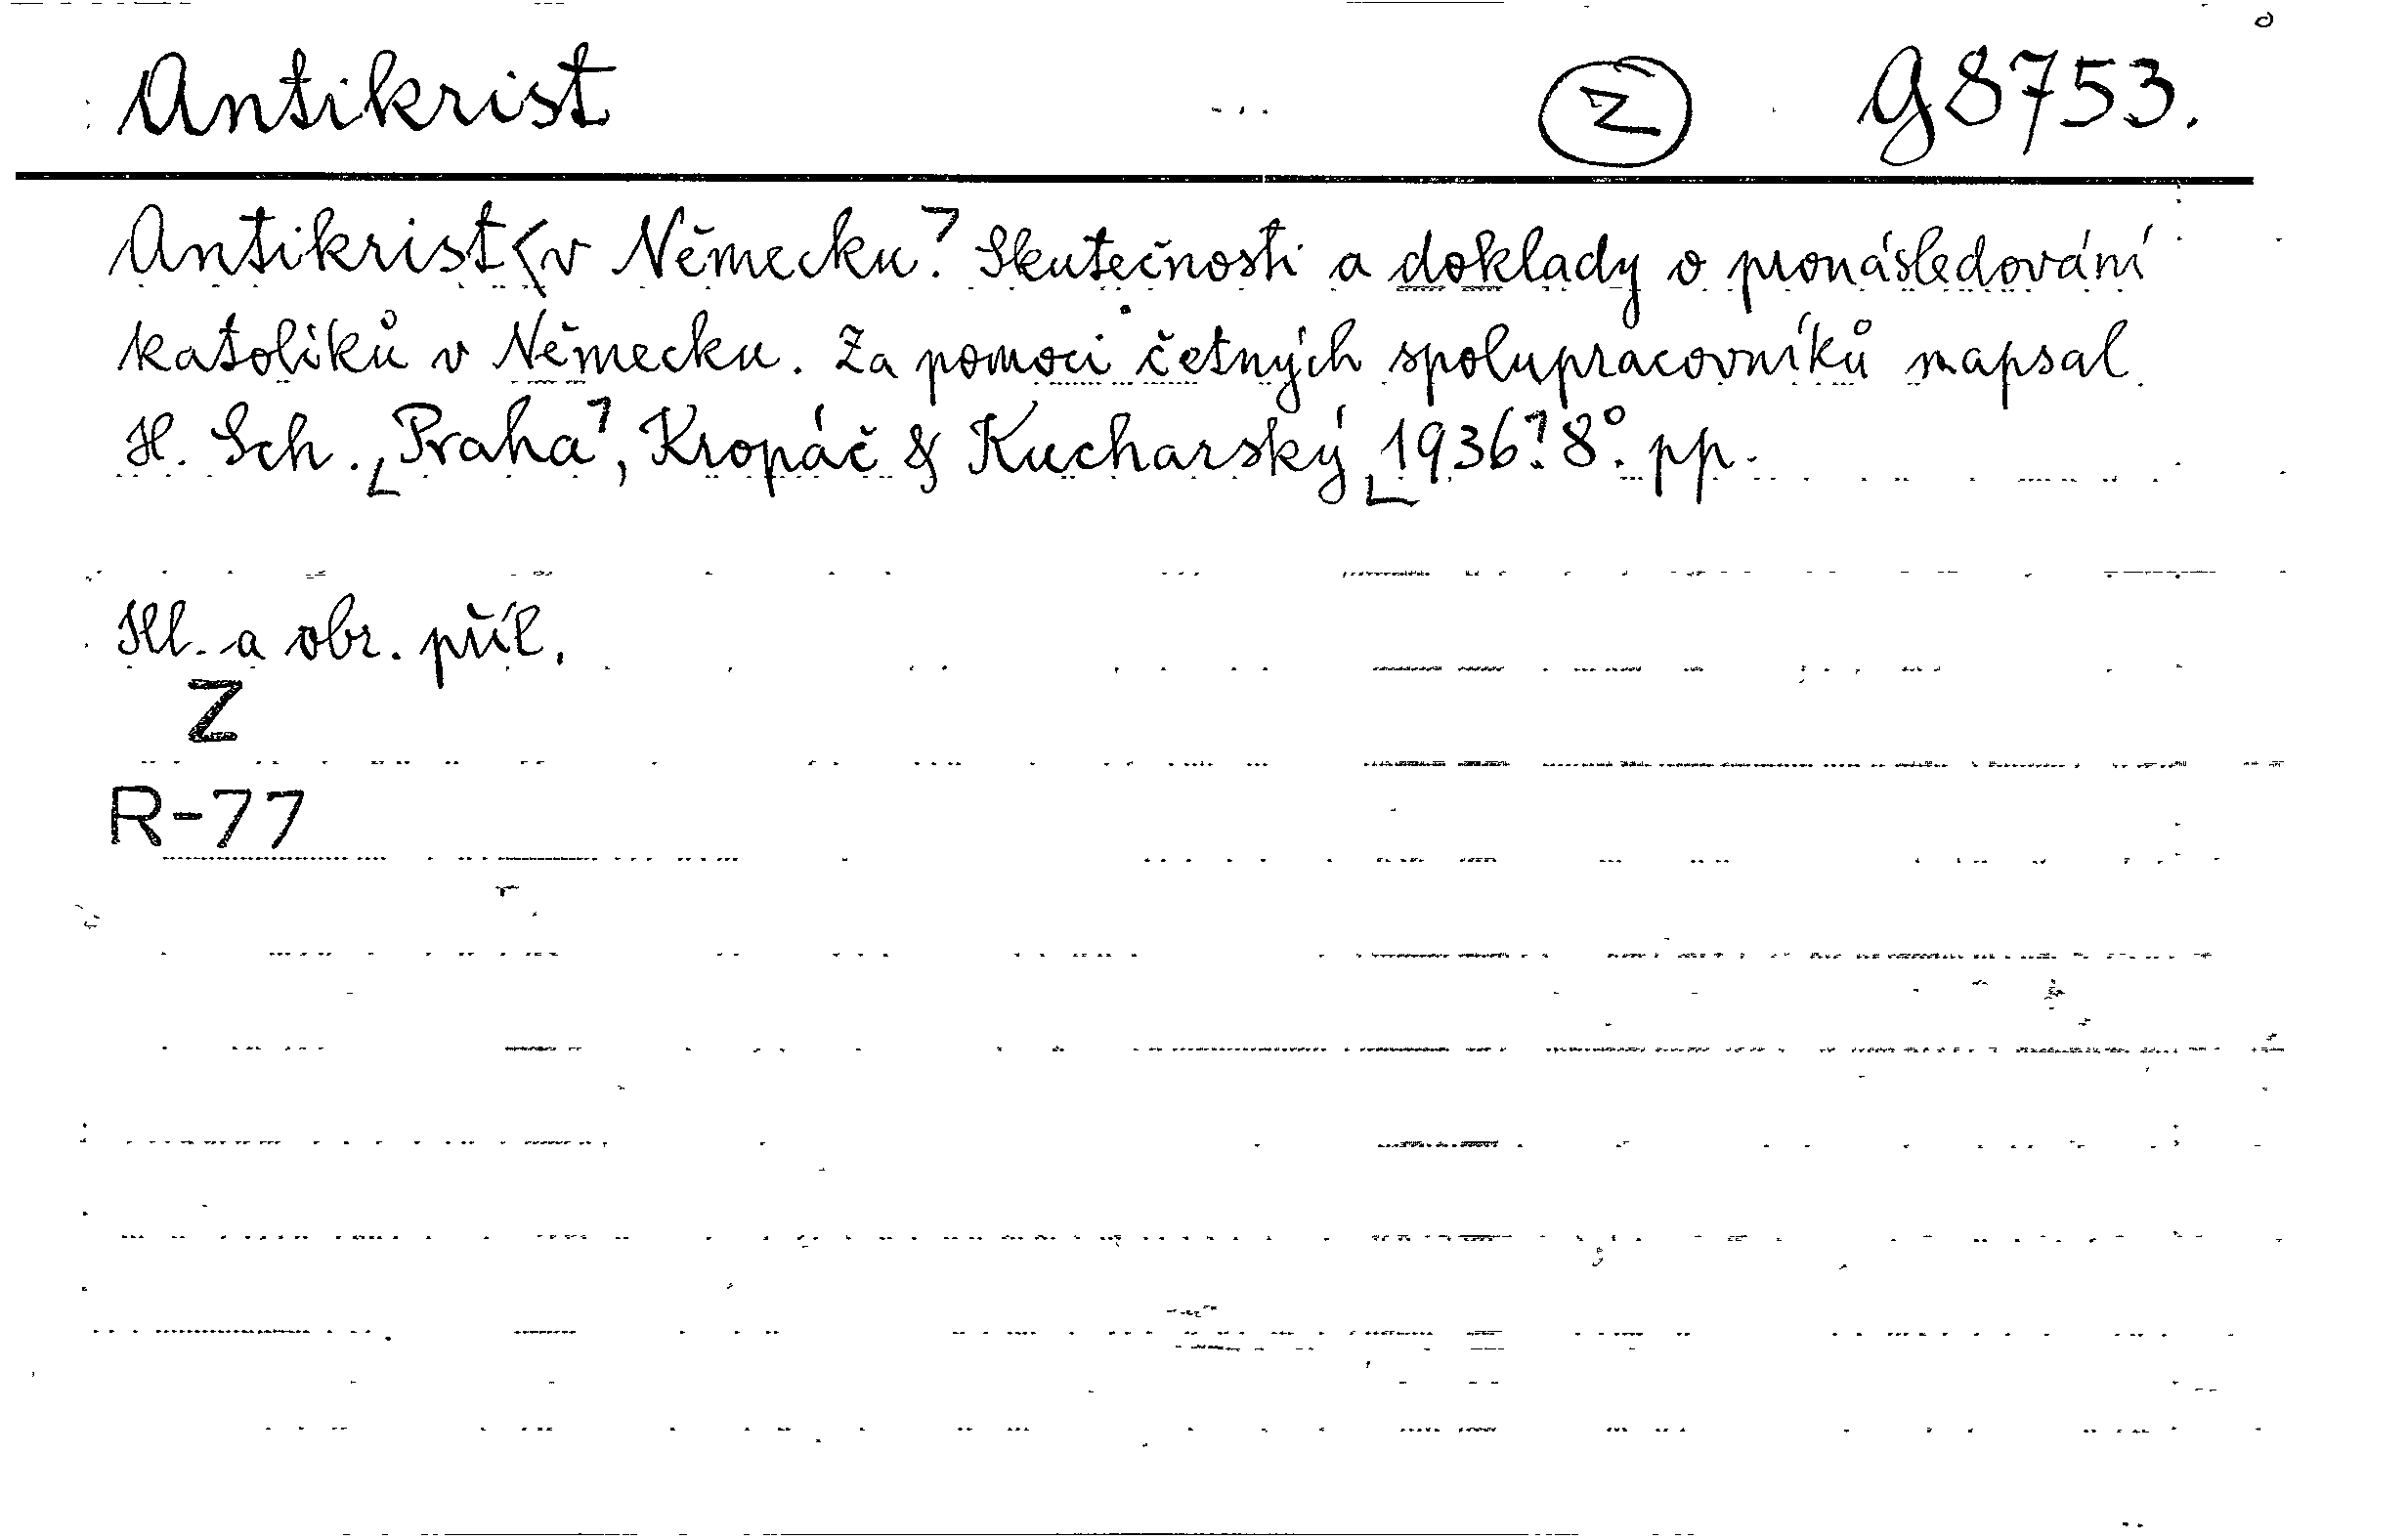 Antikrist Z G 8753.
Antikrist <v Německu.> Skutečnosti a doklady o pronásledování
katolíků v Německu. Za pomoci četných spolupracovníků napsal
H. Sch. [Praha], Kropáč & Kucharský [1936]. 8°. pp.
Ill. a obr. příl.
Z
R-77